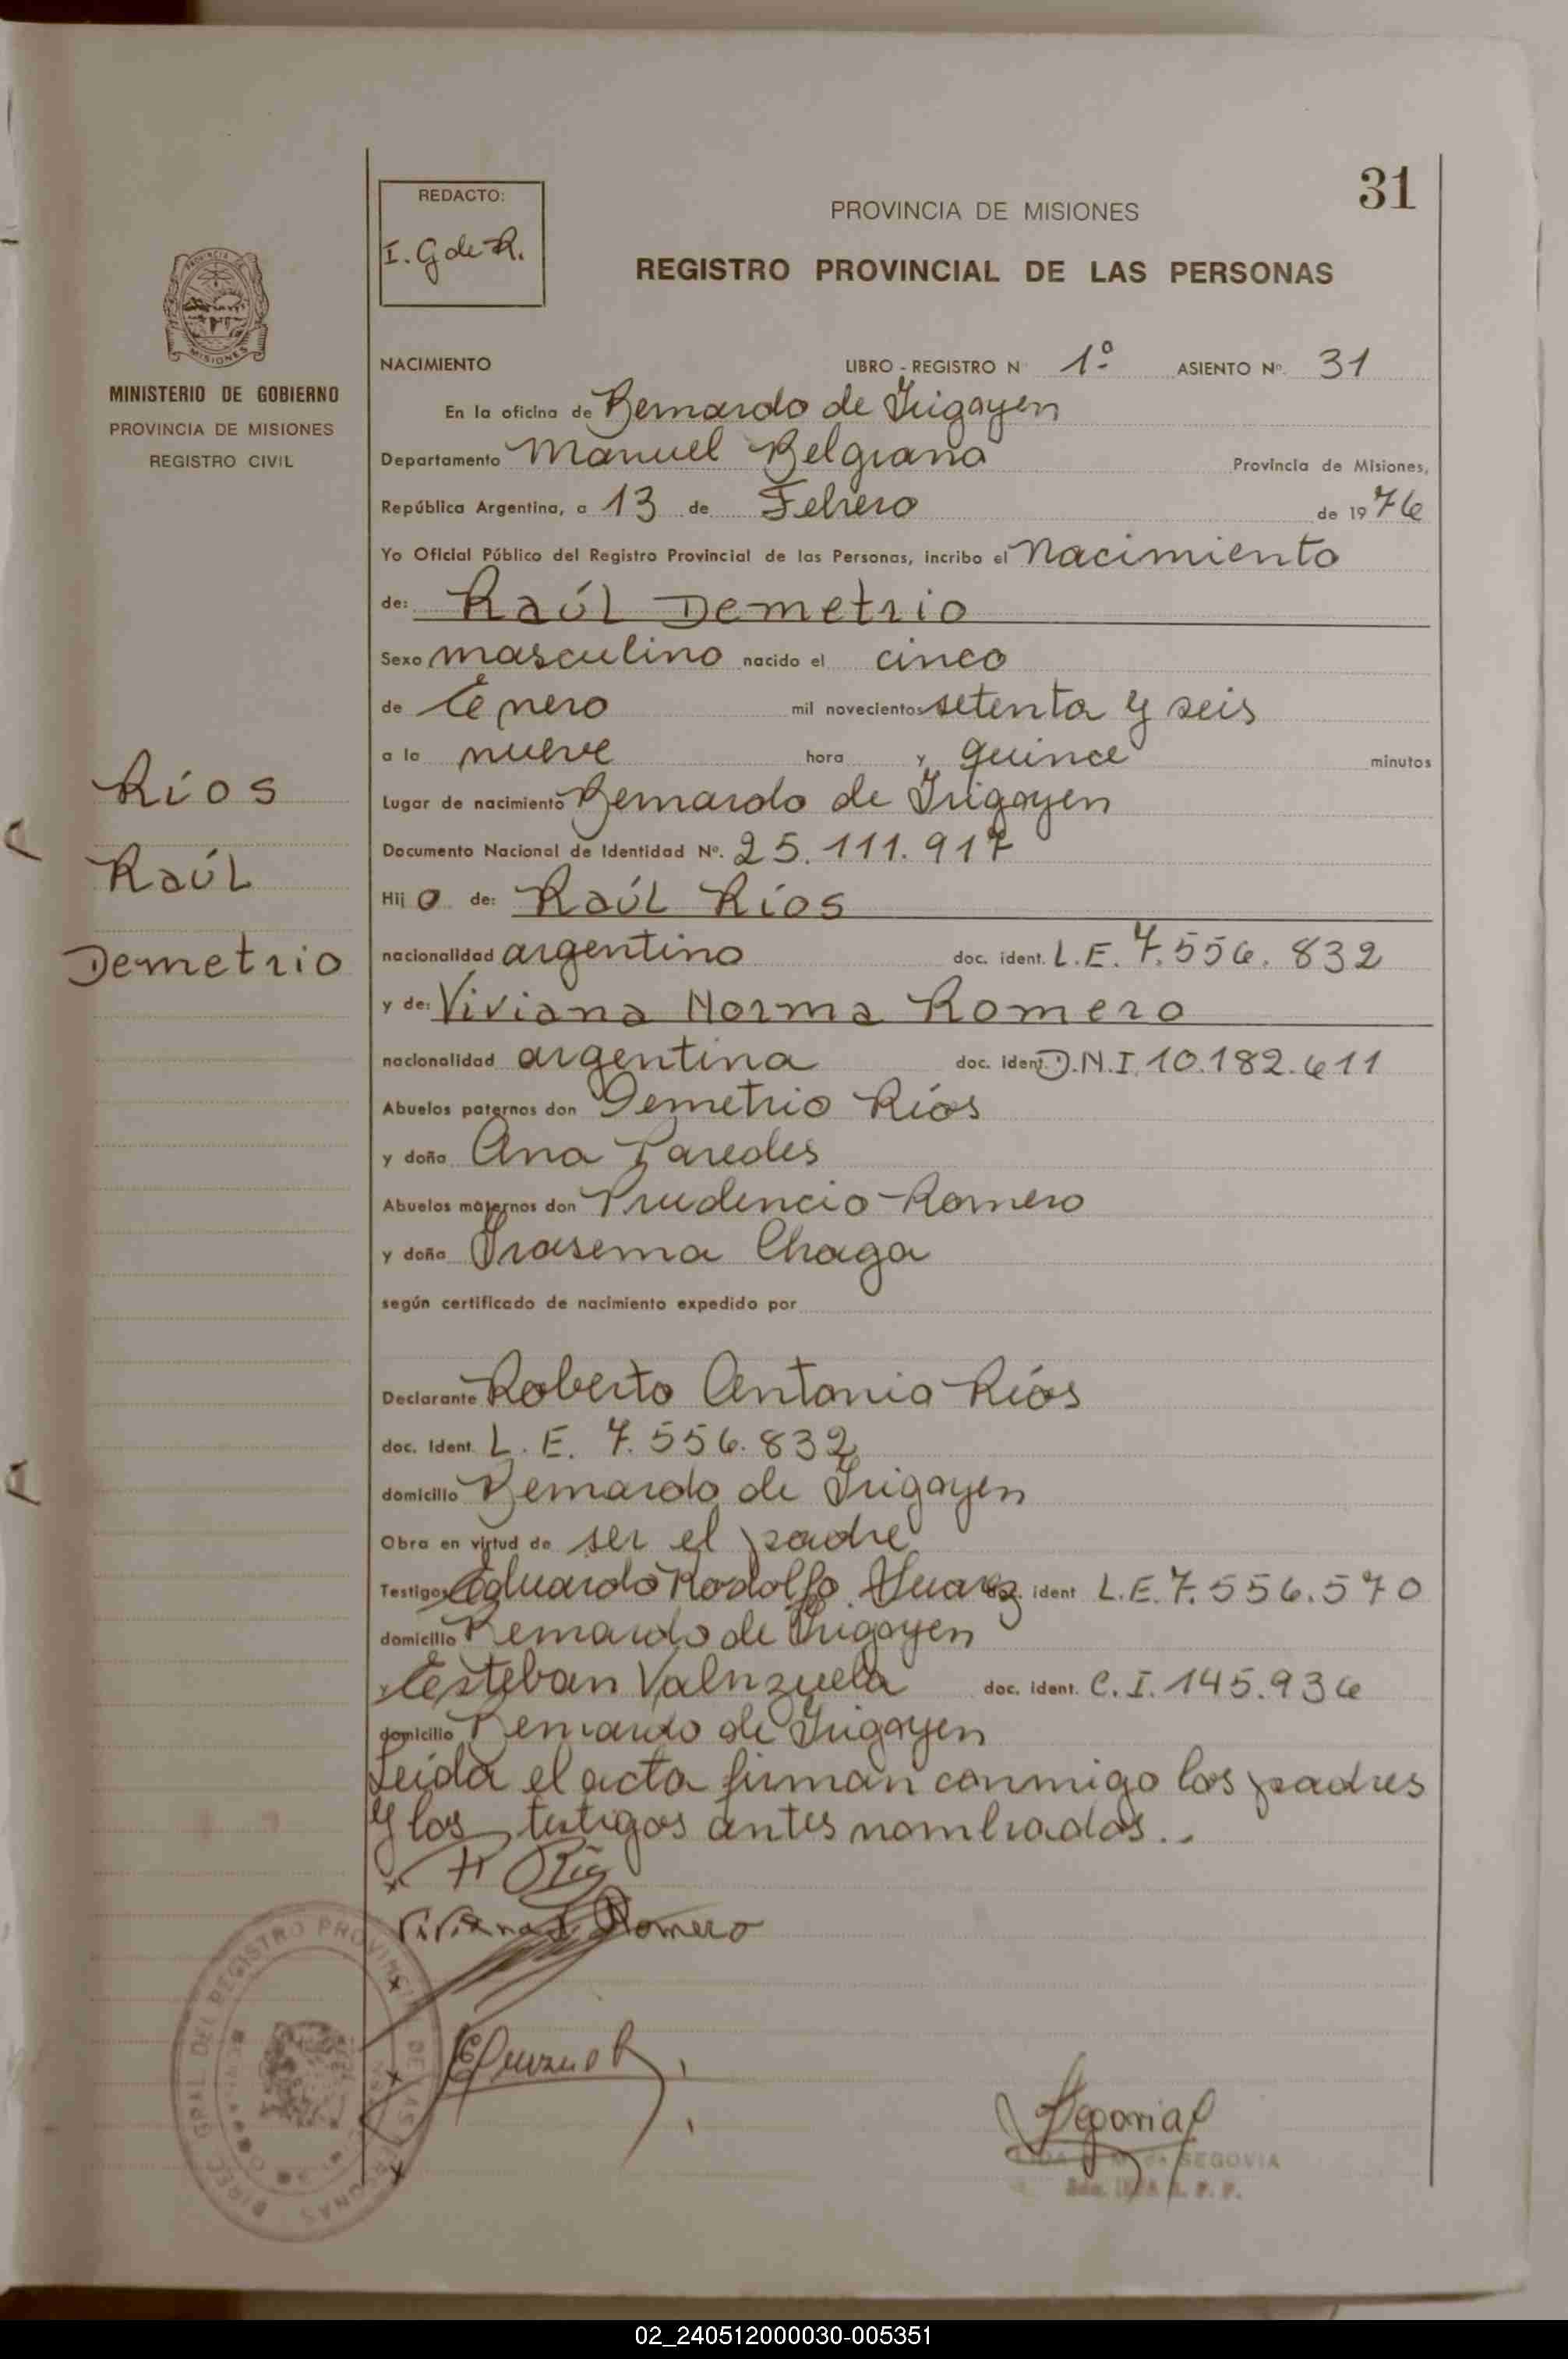 31
REDACTO:
I. G de R.
PROVINCIA DE MISIONES
REGISTRO PROVINCIAL DE LAS PERSONAS
PROVINCIA DE
MISIONES
MINISTERIO DE GOBIERNO
PROVINCIA DE MISIONES
REGISTRO CIVIL
NACIMIENTO LIBRO - REGISTRO N° 1º ASIENTO Nº 31
En la oficina de Bernardo de Irigoyen
Departamento Manuel Belgrano Provincia de Misiones,
República Argentina, a 13 de Febrero de 1976
Yo Oficial Público del Registro Provincial de las Personas, incribo el Nacimiento
de: Raúl Demetrio
Sexo masculino nacido el cinco
de Enero mil novecientos setenta y seis
a la nueve hora y quince minutos
Lugar de nacimiento Bernardo de Irigoyen
Documento Nacional de Identidad Nº. 25.111.917
Hijo de: Raúl Ríos
nacionalidad argentino doc. ident. L.E. 7.556.832
y de: Viviana Norma Romero
nacionalidad argentina doc. ident. D.N.I. 10.182.611
Abuelos paternos don Demetrio Ríos
y doña Ana Paredes
Abuelos maternos don Prudencio Romero
y doña Irasema Chaga
según certificado de nacimiento expedido por
Declarante Roberto Antonio Ríos
doc. Ident. L. E. 7.556.832
domicilio Bernardo de Irigoyen
Obra en virtud de ser el padre
Testigos Eduardo Rodolfo Suarez doc. ident L.E. 7.556.570
domicilio Bernardo de Irigoyen
Esteban Valnzuela doc. ident. C.I. 145.936
domicilio Bernardo de Irigoyen
Leída el acta firman conmigo los padres
y los testigos antes nombrados..
Ríos
Raúl
Demetrio
Viviana Romero
DIREC. GRAL DEL REGISTRO PROVINCIAL DE LAS PERSONAS
Segovia
SEGOVIA
02_240512000030-005351